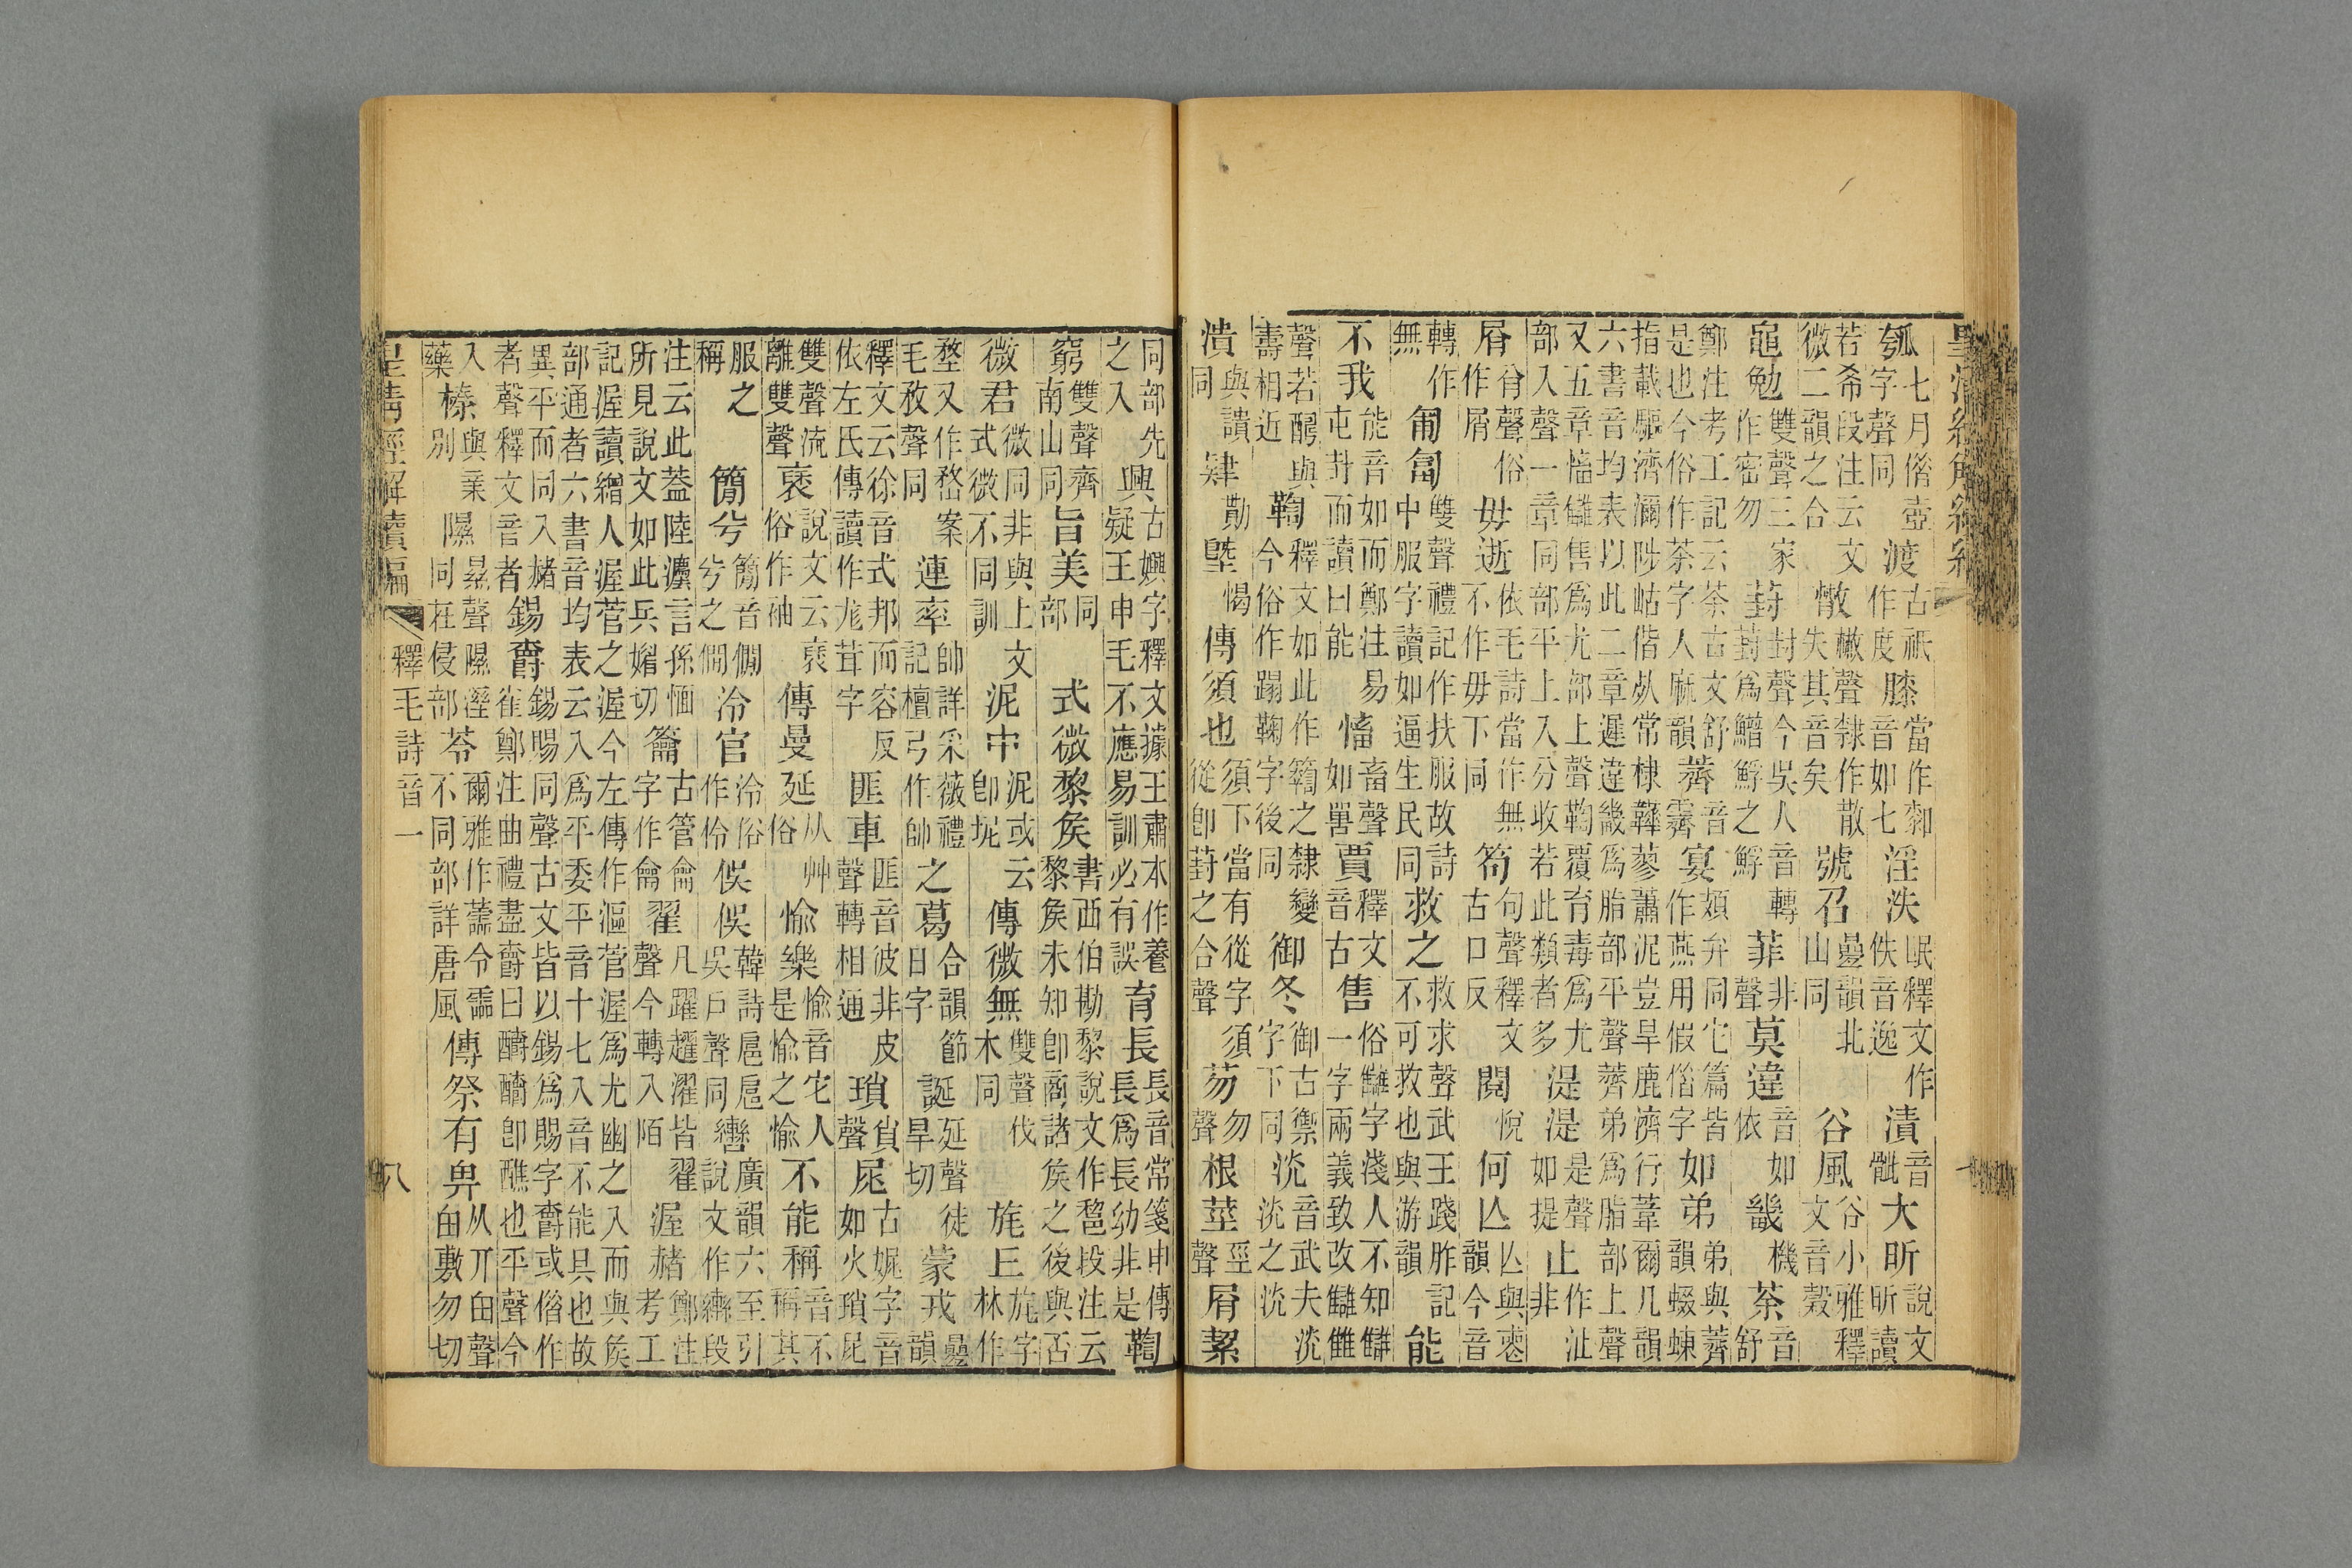 皇清經解續編
瓠七月偺壺字聲同渡古祇作度膝當作厀音如七淫泆氓釋文作佚音逸漬音骴大昕說文昕讀
若希段注云文微二韻之合聲隸作散失其音矣號召曡韻北山同谷風谷小雅釋文音穀
黽勉雙聲三家作密勿葑封聲今吳人音轉葑爲之菲非聲莫違音如依畿機荼音舒
鄭注考工記云荼古文舒是也今俗作茶字人麻韻薺音霽宴頍弁同宅篇皆作燕用假偺字如弟弟與薺韻蝃蝀
指載驅濟瀰陟岵偕㱃常棣韡蓼蕭泥豈旱鹿濟行葦爾几韻六書音均表以此二章遲違畿爲脂部平聲薺弟爲脂部上聲
又五章慉讎售爲尤部上聲鞫覆育毒爲尤部入聲一章同部平上入分收若此類者多湜湜是聲如提止作沚非
屑㕯聲俗作屑毋逝依毛詩當作無不作毋下同笱句聲釋文古口反閱悅何亾亾與悤韻今音
轉作無匍匐雙聲禮記作扶服故詩中服字讀如逼生民同救之救求聲武王踐胙記不可救也與游韻能
不我能音如而鄭注易屯對而讀曰能慉畜聲如嘼賈釋文音古售俗讎字淺人不知讎一字兩義致改讎雔
聲若醻與壽相近鞫釋文如此作之隸變今俗作蹋鞠字後同御冬御古禦字下同洸音武夫洸洸之洸
潰與讃同肄勩墍愒傳須也須下當有從字須從卽葑之合聲芴勿聲根莖巠聲屑絜
同部先之入興古嬹字釋文據王肅本作養疑王申毛不應易訓必有誤育長長音常箋申傳長爲長幼非是鞫
窮雙聲齊南山同旨美同部式微黎矦書西伯勘黎說文作段注云黎矦未知卽商諸矦之後與否
微君微同非與上文式微不同訓泥中泥或云卽坭傳微無雙聲伐木同旄丘旄字林作
堥又作嵍案毛敄聲同連率帥詳采薇禮記檀弓作帥之葛合韻節日字誕延聲徒旱切蒙戎曡韻
釋文云徐音式邦而容反依左氏傳讀作尨茸字匪車匪音彼非皮聲轉相通瑣𧴪聲尾古娓字音如火瑣尾
雙聲流離雙聲褎說文云褎俗作袖傳曼延从艸俗愉樂愉音宅人是愉之愉不能稱音不稱其
服稱之簡兮簡音僩兮之僩泠官泠俗作伶俁俁韓詩扈扈吳戶聲同轡廣韻六至引說文作轡段
注云此蓋陸灋言孫愐所見說文如此兵媚切籥古管侖字作龠翟凡躍趯濯皆翟聲今轉入陌渥赭鄭注考工
記渥讀繒人渥菅之渥今左傳作漚菅渥爲尤幽之入而與矦部通者六書音均表云入爲平委平音十七入音不能具也故
異平而同入赭者聲釋文音者錫爵錫賜同聲古文皆以錫爲賜字爵或俗作雀鄭注曲禮盡爵曰釂釂卽醮也平聲今
入藥榛與業別隰㬎聲隰溼同在侵部苓爾雅作蘦令霝不同部詳唐風傳祭有畀从丌甶聲甶敷勿切
皇清經解續編 釋毛詩音一 八